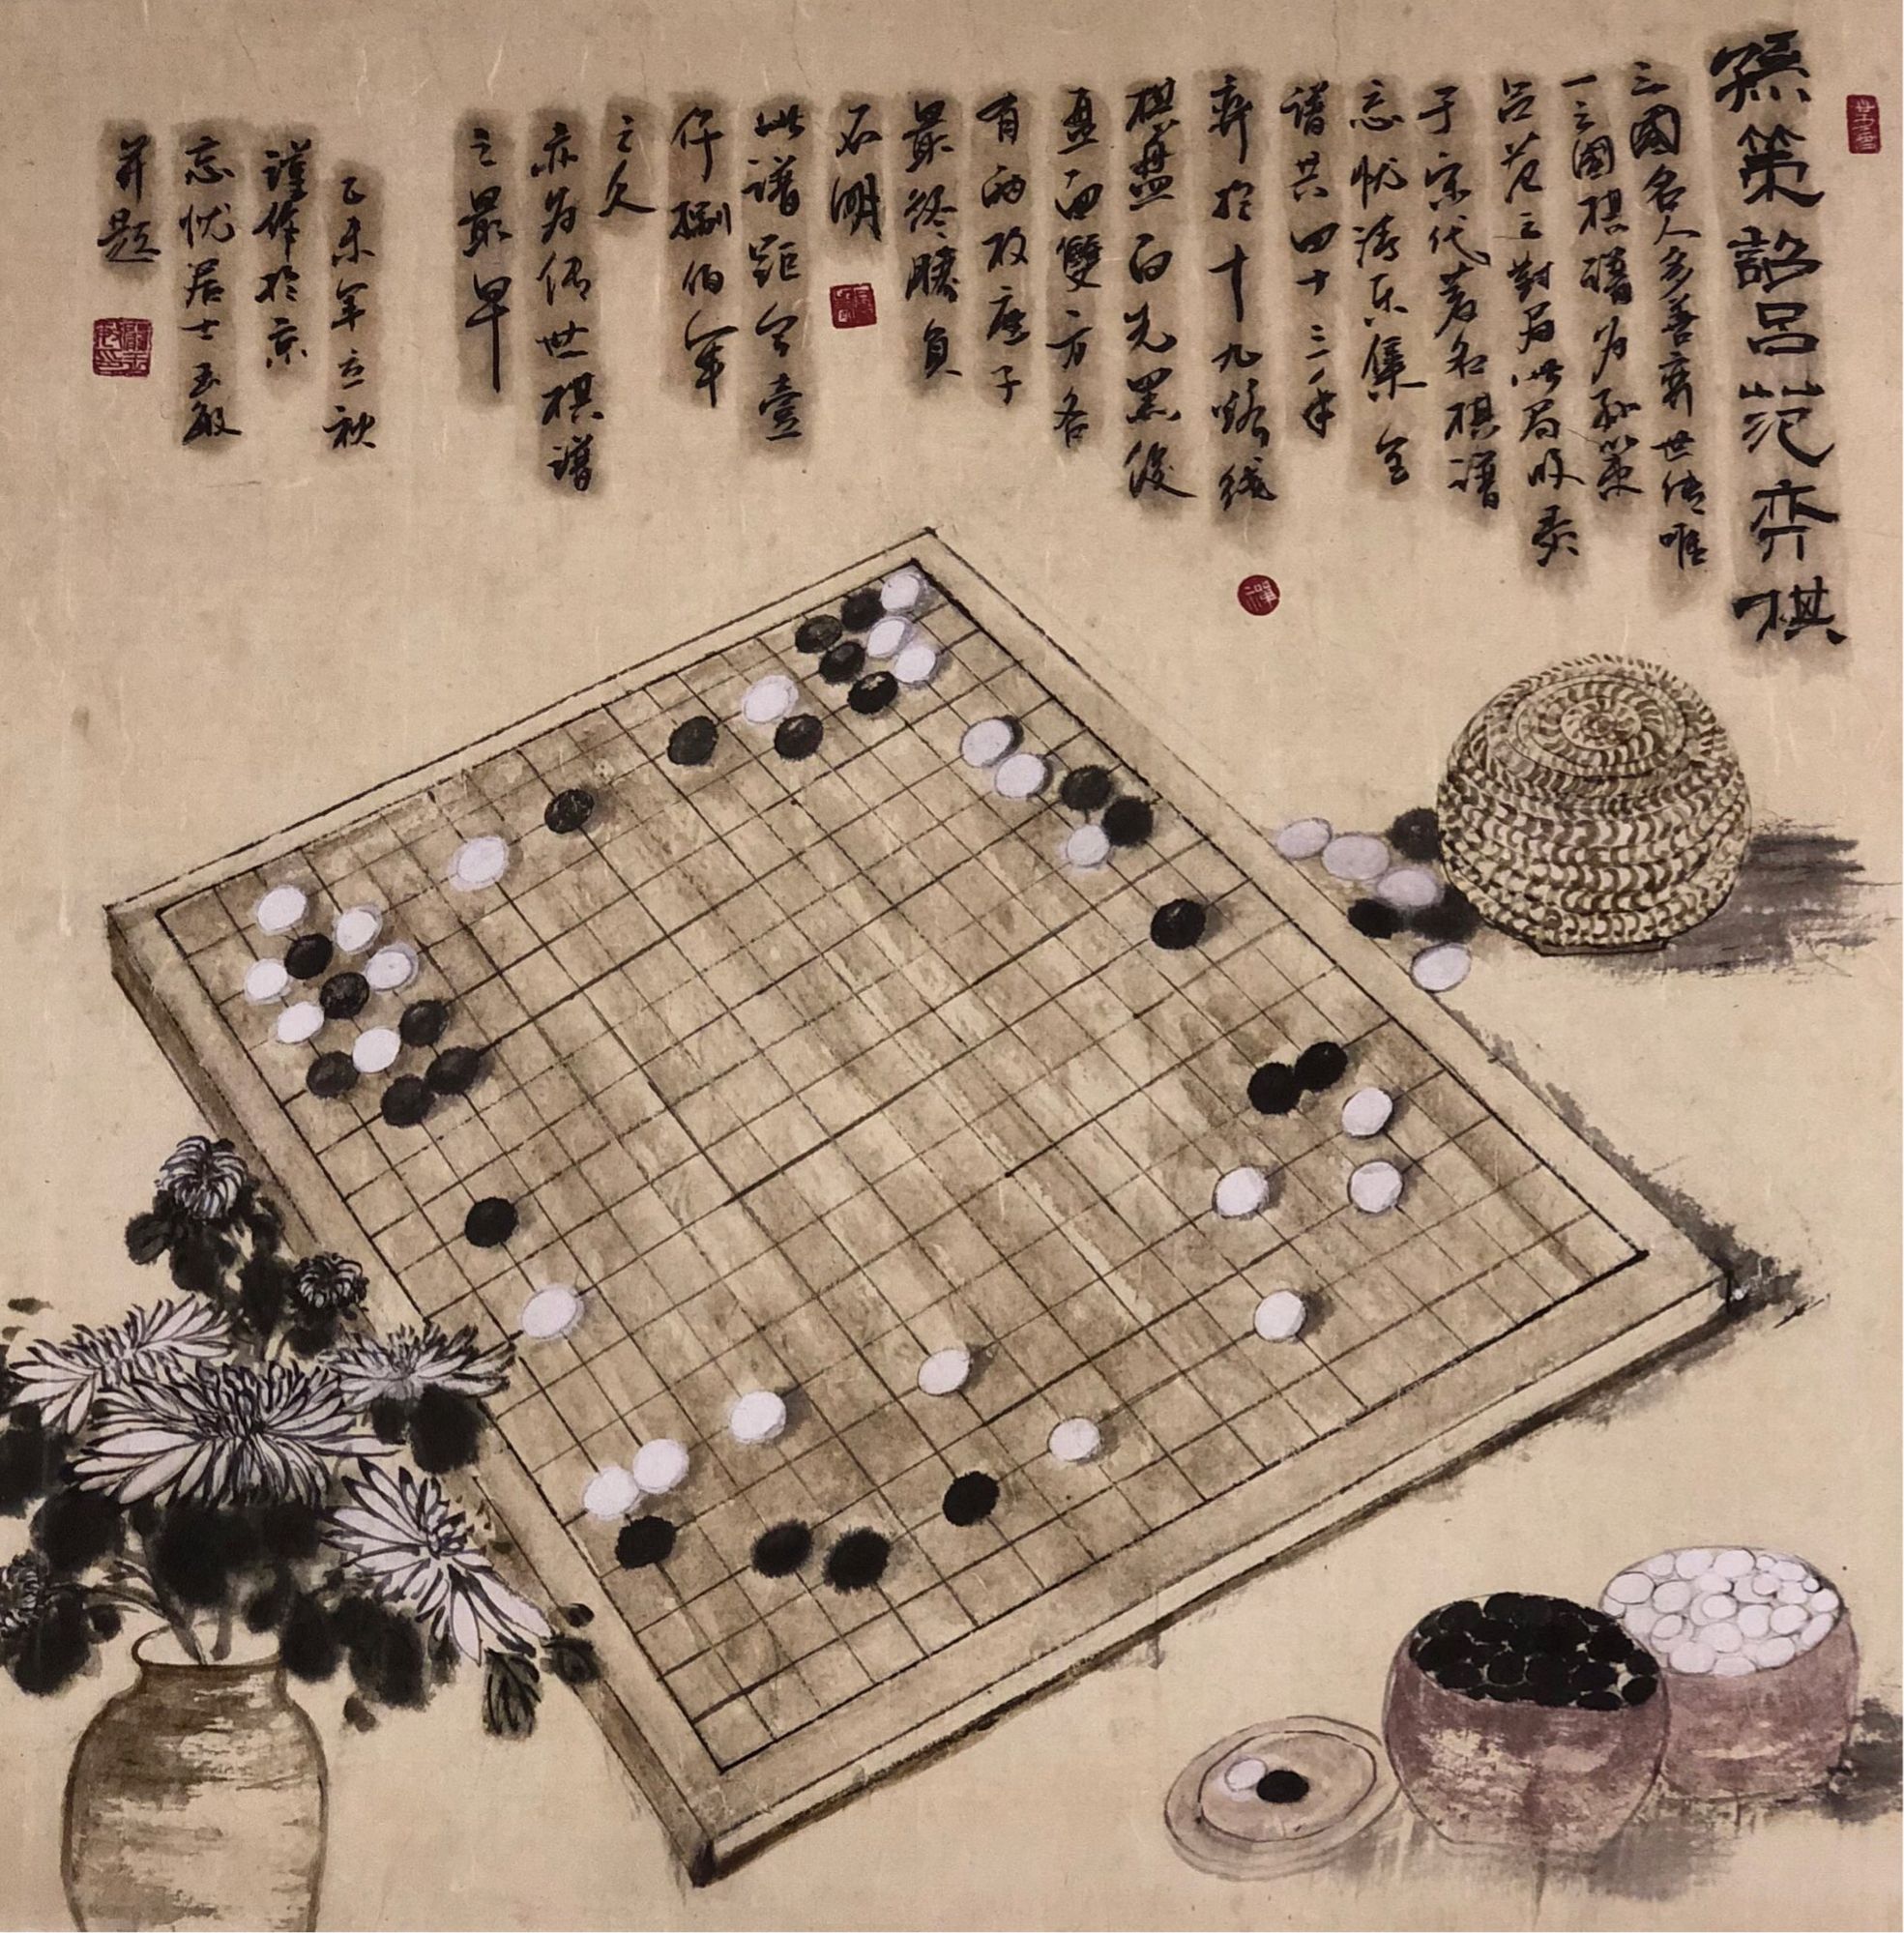 孫策詔呂范弈棋
三國名人多善弈世传唯
一三國棋譜为孙策
呂范之對局此局收录
于宗代著名棋譜
忘忧清乐集全
譜共四十三手
弈於十九路线
棋盤白先黑後
盘面雙方各
有两枚座子
最终勝負
不明
此譜距今壹
仟捌佰年
之久
亦为传世棋譜
之最早
乙未年立秋
谨作於京
忘忧居士玉敏
并題